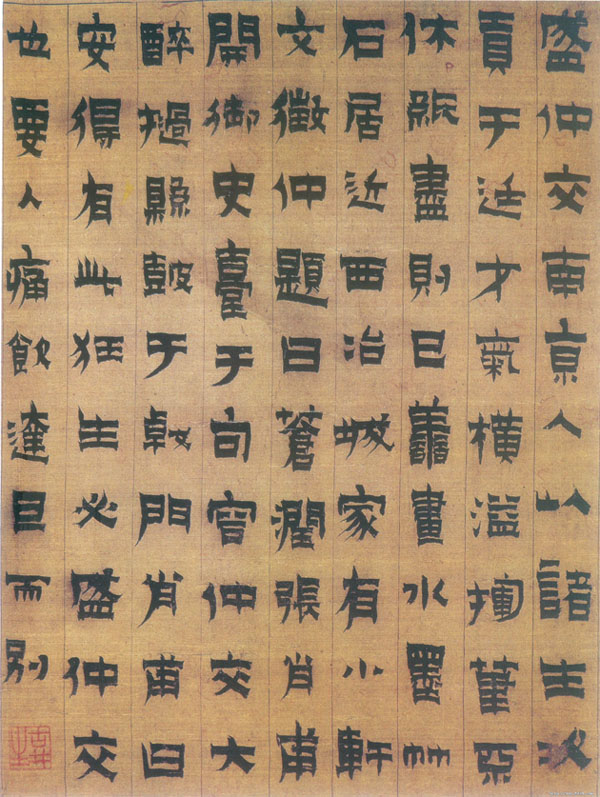 盛仲交南京人以諸生次
貢于廷才氣橫溢揮筆不
休紙盡則已善畫水墨竹
石居近西冶城家有小軒
文徵仲題曰蒼潤張肖甫
開御史臺于句容仲交大
醉撾縣鼓于門肖甫曰
安得有此狂生必盛仲交
也要人痛飲達旦而別